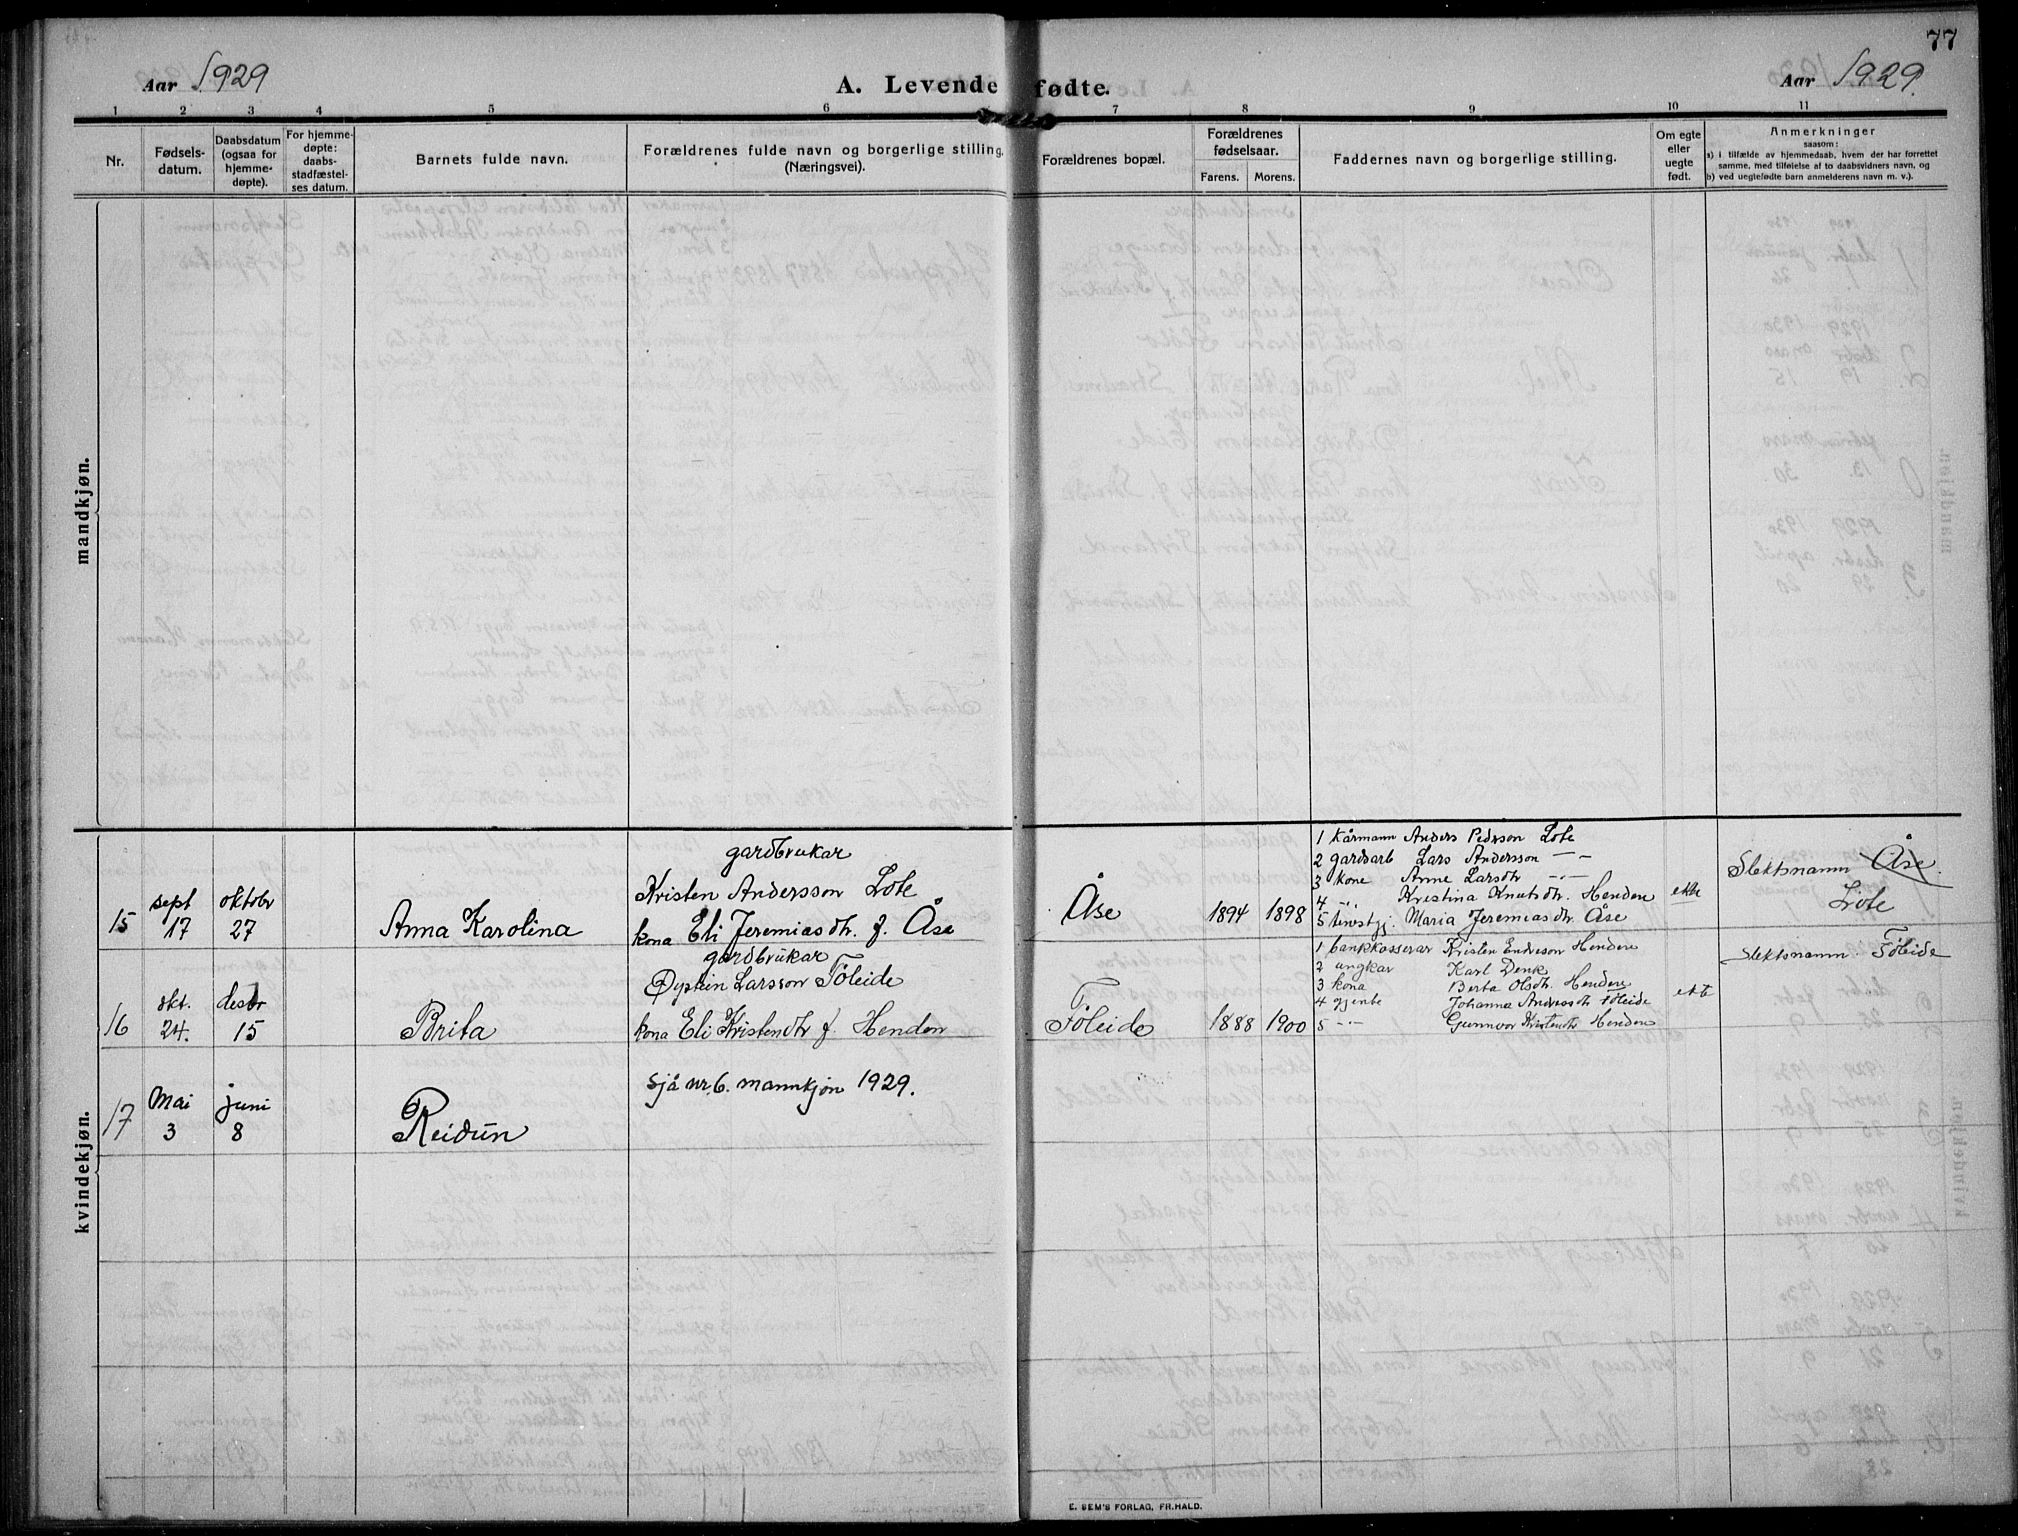 77
Aar 1929
A. Levende fødte.
Aar 1929.
1 2 3 4 5 6 7 8 9 10 11
Nr.
Fødsels-
datum.
Daabsdatum
(ogsaa for
hjemme-
døpte).
For hjemme-
døpte:
daabs-
stadfæstel-
ses datum.
Barnets fulde navn.
Forældrenes fulde navn og borgerlige stilling.
(Næringsvei).
Forældrenes bopæl.
Forældrenes
fødselsaar.
Farens. Morens.
Faddernes navn og borgerlige stilling.
Om egte
eller
uegte
født.
Anmerkninger
saasom:
a) i tilfælde av hjemmedaab, hvem der har forrettet
samme, med tilføielse af to daabsvidners navn, og
b) ved uegtefødte barn anmelderens navn m. v.).
mandkjøn.
kvindekjøn.
15
sept
17
oktobr
27
Anna Karolina
gardbrukar
Kristen Andersson Lote
kona Eli Jeremiasdtr. f. Åse
Åse
1894 1898
1 kårmann Anders Pedrson Lote
2 gardsarb Lars Andersson -"-
3 kone Anne Larsdtr -"-
4 -"- Kristina Knutsdtr. Henden
5 Maria Jeremiasdtr. Åse
ekte
Slektsnamn Åse.
Lote
16
okt.
24.
desbr
15
Brita
gardbrukar
Øystein Larsson Føleide
kona Eli Kristendtr f. Henden
Føleide
1888 1900
1 bankkasserar Kristen Endreson Henden
2 ungkar Karl Denk
3 kona Berta Olsdtr. Henden
4 gjente Johanna Andersdtr Føleide
5 -"- Gunnvor Kristendtr Henden
ekte
Slektsnamn Føleide
17
Mai
3
juni
8
Reidun
Sjå nr. 6. mannkjøn 1929.
E. SEM'S FORLAG, FR.HALD.